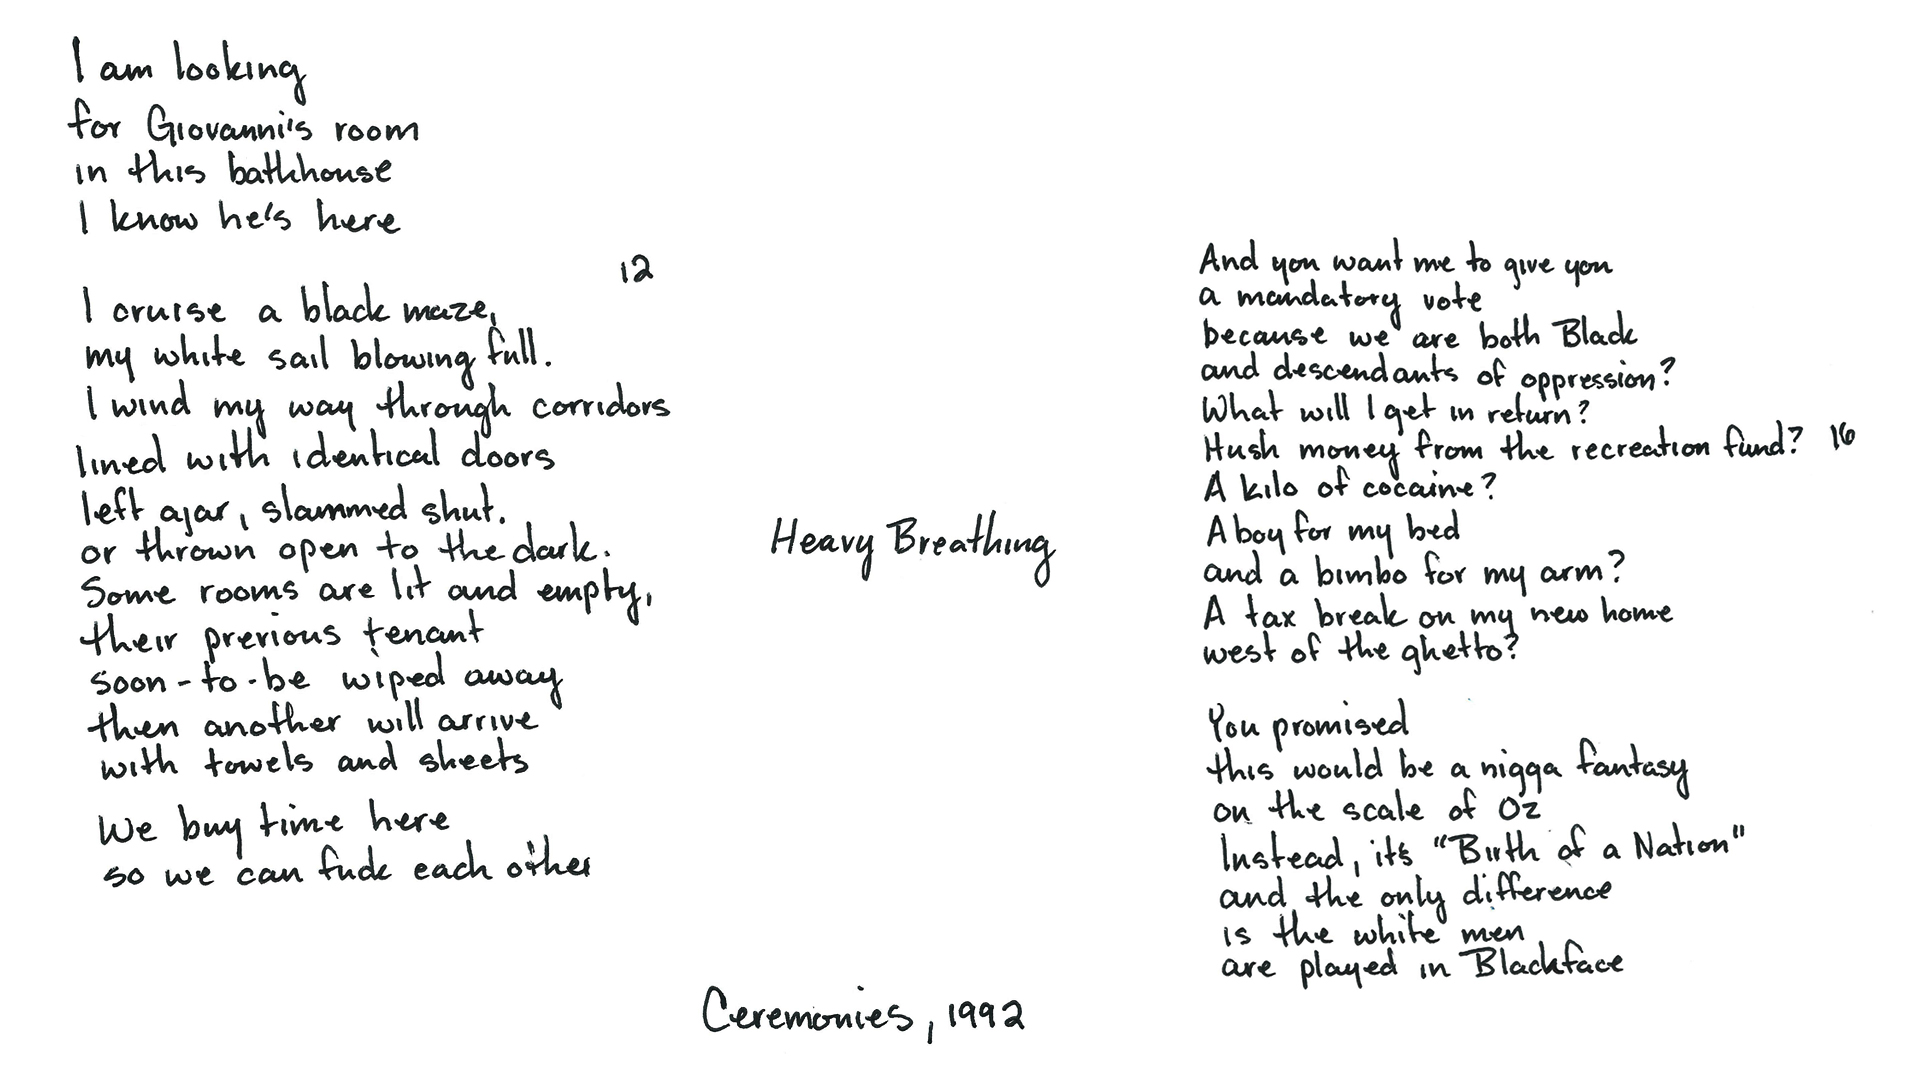 I am looking
for Giovanni's room
in this bathhouse
I know he's here
12
I cruise a black maze,
my white sail blowing full.
I wind my way through corridors
lined with identical doors
left ajar, slammed shut.
or thrown open to the dark.
Some rooms are lit and empty,
their previous tenant
soon-to-be wiped away
then another will arrive
with towels and sheets
We buy time here
so we can fuck each other
Heavy Breathing
And you want me to give you
a mandatory vote
because we are both Black
and descendants of oppression?
What will I get in return?
Hush money from the recreation fund? 16
A kilo of cocaine?
A boy for my bed
and a bimbo for my arm?
A tax break on my new home
west of the ghetto?
You promised
this would be a nigga fantasy
on the scale of Oz
Instead, it's "Birth of a Nation"
and the only difference
is the white men
are played in Blackface
Ceremonies, 1992